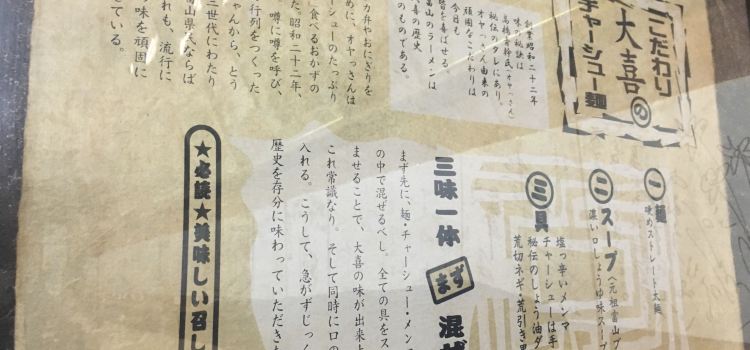 こだわり
大喜の
チャーシュー麺
創業昭和二十二年
味の秘訣は
秘伝のタレにあり。
オヤっさん由来の
頑固なこだわりは
今日も
皆を喜ばせる。
富山のラーメンは
大喜の歴史
そのものである。
カ弁やおにぎりを
ために、オヤっさんは
シューのたっぷり
食べるおかずの
た。昭和二十二年、
噂に噂を呼び、
行列をつくった
ちゃんから、とう
三世代にわたり
富山県人ならば
れも、流行に
の味を頑固に
ている。
一 麺
硬めストレート太麺
二 スープ
(元祖富山ブ
濃い口しょうゆ味スープ
三 具
塩っ辛いメンマ
チャーシューは手
秘伝のしょう油ダ
荒切ネギ・荒引き黒
三味一体 まず 混ぜ
まず先に、麺・チャーシュー・メン
の中で混ぜるべし。全ての具をス
ませることで、大喜の味が出来上
これ常識なり。そして同時に口の
入れる。こうして、急がずじっく
歴史を存分に味わっていただきた
★必読★美味しい召し